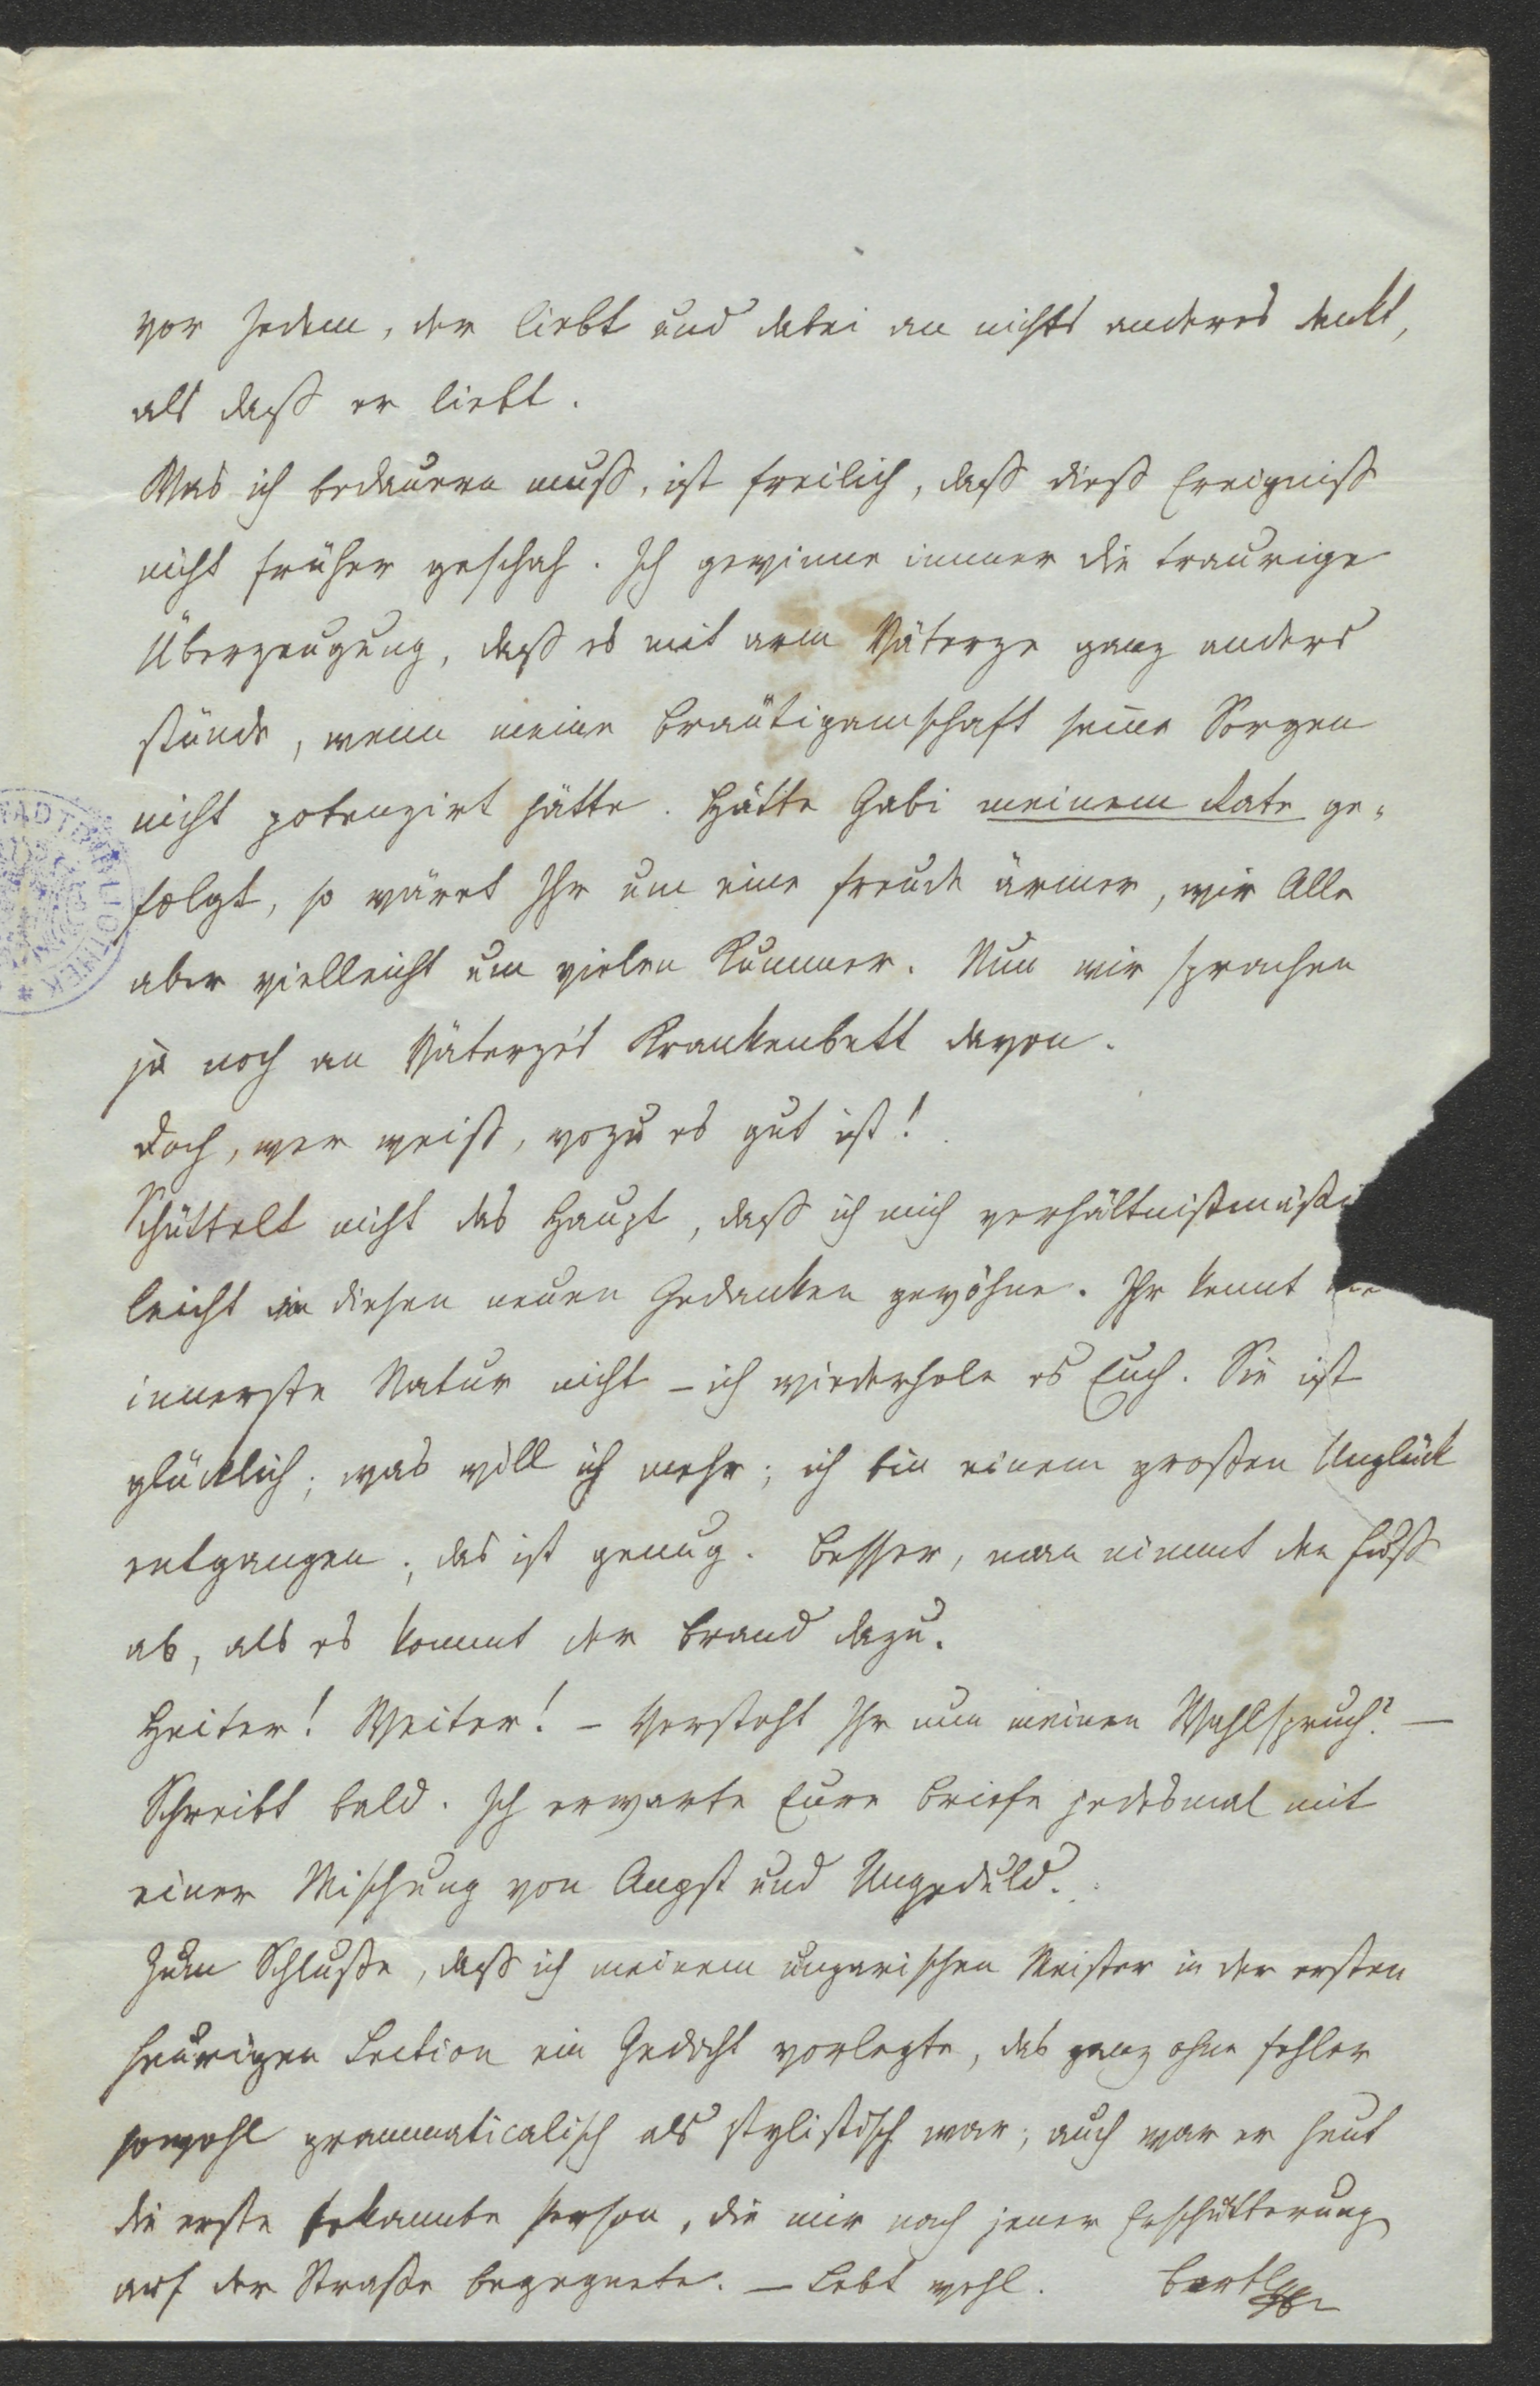 vor Jedem, der liebt und dabei an nichts anderes denkt,
als daß er liebt.
Was ich bedauern muß, ist freilich, daß dieß Ereigniß
nicht früher geschah. Ich gewinne immer die traurige
Überzeugung, daß es mit arm Väterze ganz anders
stünde, wenn meine Bräutigamschaft seine Sorgen
nicht potenzirt hätte. Hätte Gabi meinem Rate ge-
folgt, so wäret Ihr um eine Freude ärmer, wir Alle
aber vielleicht um vielen Kummer. Nun wir sprachen
ja noch an Väterze's Krankenbett davon.
Doch, wer weiß, wozu es gut ist!
Schüttelt nicht das Haupt, daß ich mich verhältnißmäßi
leicht in diesen neuen Gedanken gewöhne. Ihr kennt
innerste Natur nicht – ich wiederhole es Euch. Sie ist
glücklich; was will ich mehr; ich bin einem großen Unglück
entgangen; das ist genug. Besser, man nimmt den Fuß
ab, als es kommt der Brand dazu.
Heiter! Weiter! – Versteht Ihr nun meinen Wahlspruch? –
Schreibt bald. Ich erwarte Eure Briefe jedesmal mit
einer Mischung von Angst und Ungeduld.
Zum Schluße, daß ich meinem ungarischen Meister in der ersten
heurigen Lection ein Gedicht vorlegte, das ganz ohne Fehler
sowohl grammaticalisch als stylistisch war; auch war er heut
die erste bekannte Person, die mir nach jener Erschütterung
auf der Straße begegnete. – Lebt wohl. Bertl
STADTBIBLIOTHEK